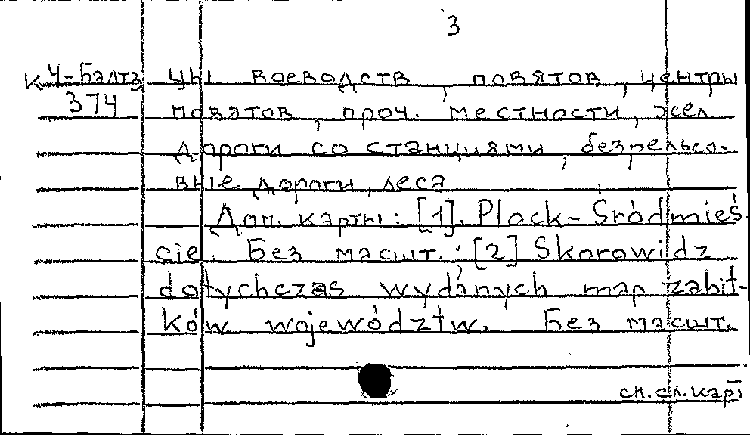 3
К Ч-Балтз цы воеводств, повятов, центры
374 повятов, проч. местности, жел.
дороги со станциями, безрельсо-
вые дороги, леса
Доп. карты: [1]. Plock-Sródmieś
cie. Без масшт.; [2] Skorowidz
dotychczas wydanych map zabit-
ków województw. Без масшт.
см. сл. карт